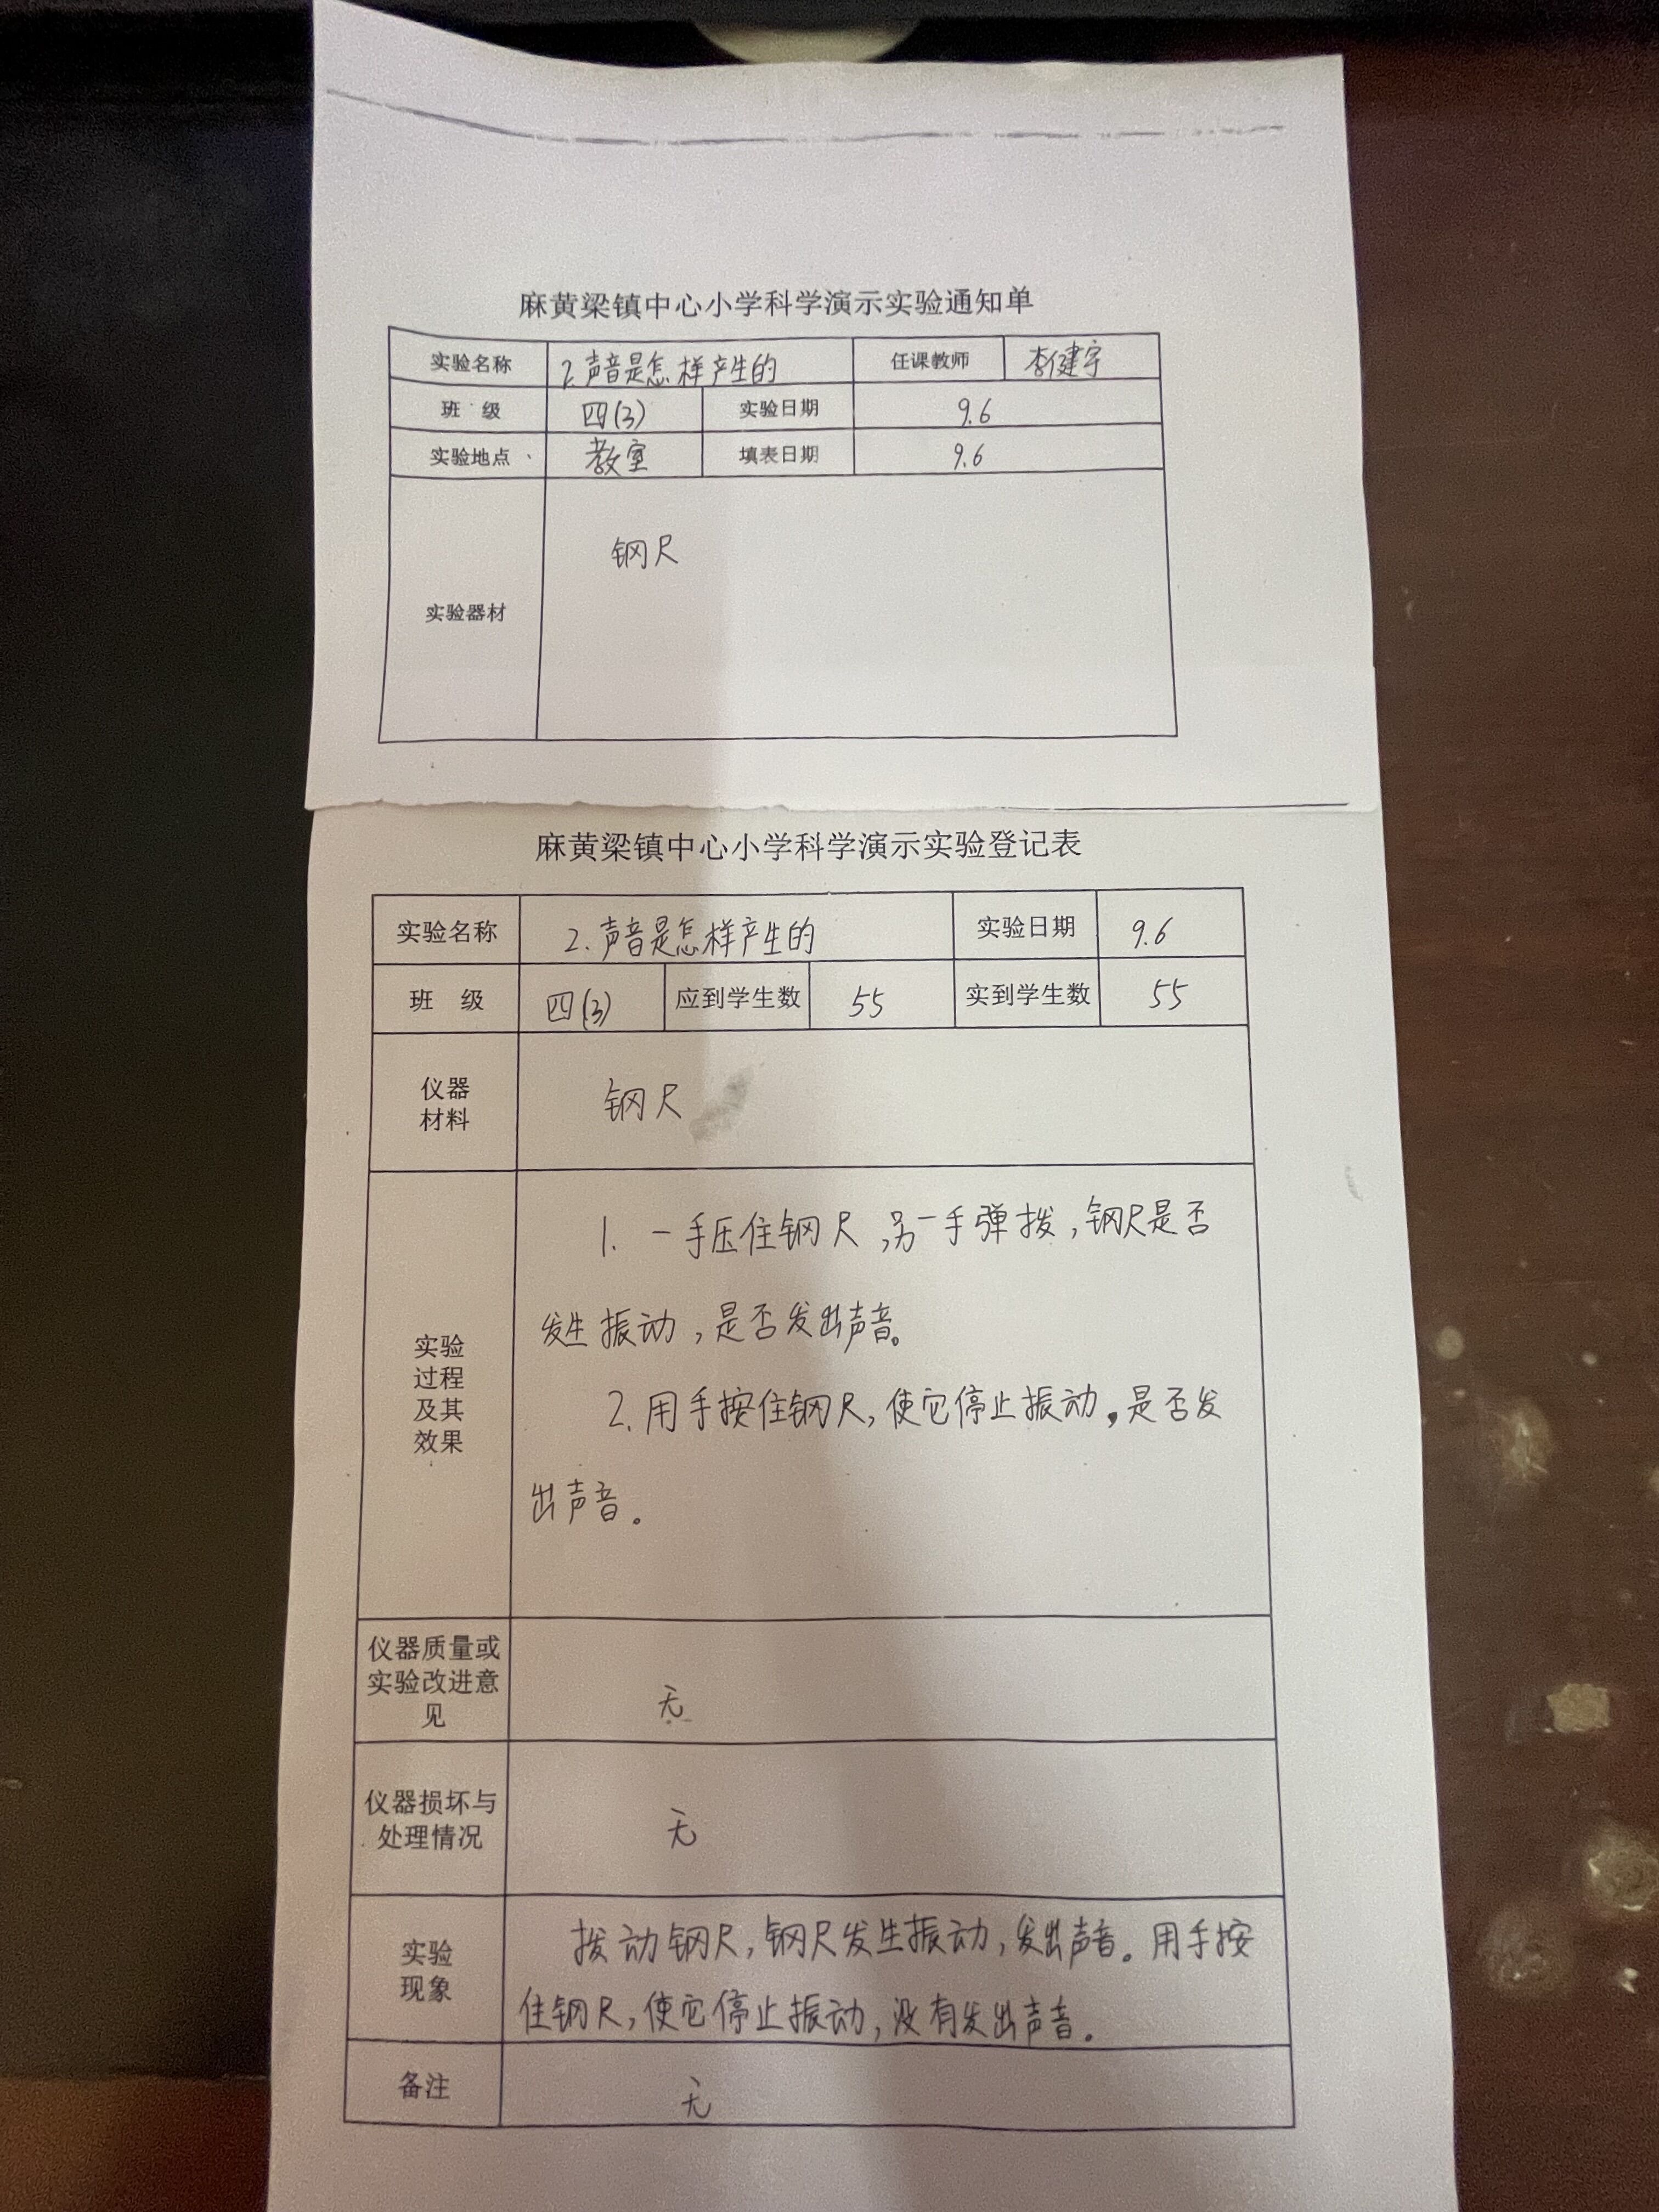 麻黄梁镇中心小学科学演示实验通知单
实验名称 2.声音是怎样产生的 任课教师 李健宇
班 级 四(3) 实验日期 9.6
实验地点 教室 填表日期 9.6
钢尺
实验器材
麻黄梁镇中心小学科学演示实验登记表
实验名称 2.声音是怎样产生的 实验日期 9.6
班 级 四(3) 应到学生数 55 实到学生数 55
仪器
材料
钢尺
实验
过程
及其
效果
1. 一手压住钢尺,另一手弹拨,钢尺是否
发生振动,是否发出声音。
2.用手按住钢尺,使它停止振动,是否发
出声音。
仪器质量或
实验改进意
见
无
仪器损坏与
处理情况
无
实验
现象
拨动钢尺,钢尺发生振动,发出声音。用手按
住钢尺,使它停止振动,没有发出声音。
备注 无